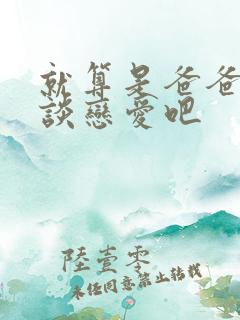 就算是爸爸
談戀愛吧
陸壹零
未經同意禁止轉載